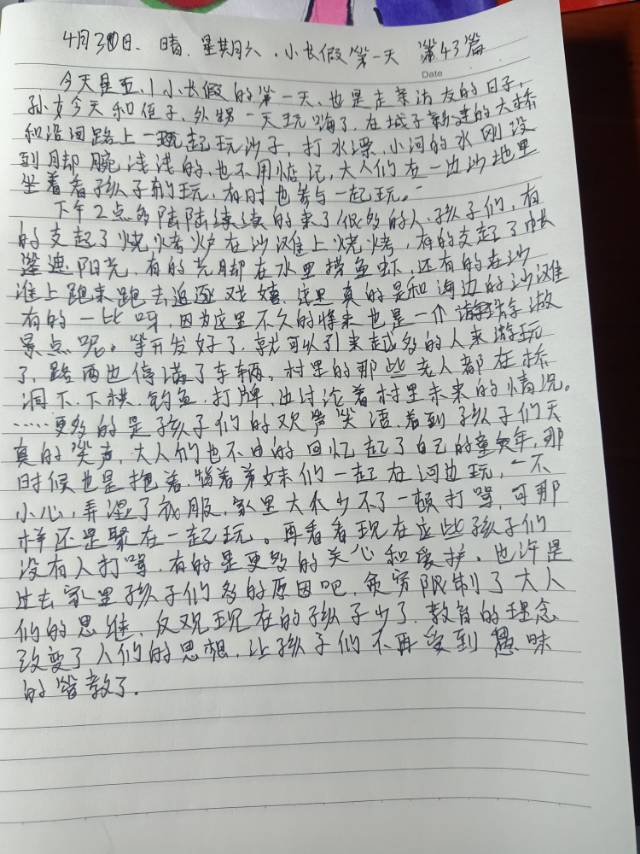 4月30日、晴、星期六、小长假第一天 第43篇
Date
今天是五.1小长假的第一天、也是走亲访友的日子,
孙女今天和侄子、外甥一天玩嗨了、在坝子新建的大桥
和沿河路上一起玩沙子、打水漂、小河的水刚没
到脚腕浅浅的、也不用惦记,大人们在一边沙地里
坐着看孩子们玩、有时也参与一起玩。
下午2点多陆陆续续的来了很多的人、孩子们,有
的支起了烧烤炉在沙滩上烧烤,有的支起了帐
篷遮阳光、有的光脚在水里捞鱼虾、还有的在沙
滩上跑来跑去追逐戏嬉、这里真的是和海边的沙滩
有的一比呀、因为这里不久的将来也是一个
景点呢。等开发好了、就可以引来越多的人来游玩
了、路两边停满了车辆、村里的那些老人都在桥
洞下、下棋、钓鱼、打牌、也讨论着村里未来的情况。
……更多的是孩子们的欢声笑语、看到孩子们天
真的笑声、大人们也不由的回忆起了自己的童年,那
时候也是抱着、背着弟妹们一起在河边玩,一不
小心、弄湿了衣服、家里大人少不了一顿打骂、可那
样还是聚在一起玩。再看看现在这些孩子们
没有人打骂、有的是更多的关心和爱护、也许是
过去家里孩子们多的原因吧、贫穷限制了大人
们的思维、反观现在的孩子少了、教育的理念
改变了人们的思想、让孩子们不再受到愚昧
的管教了.